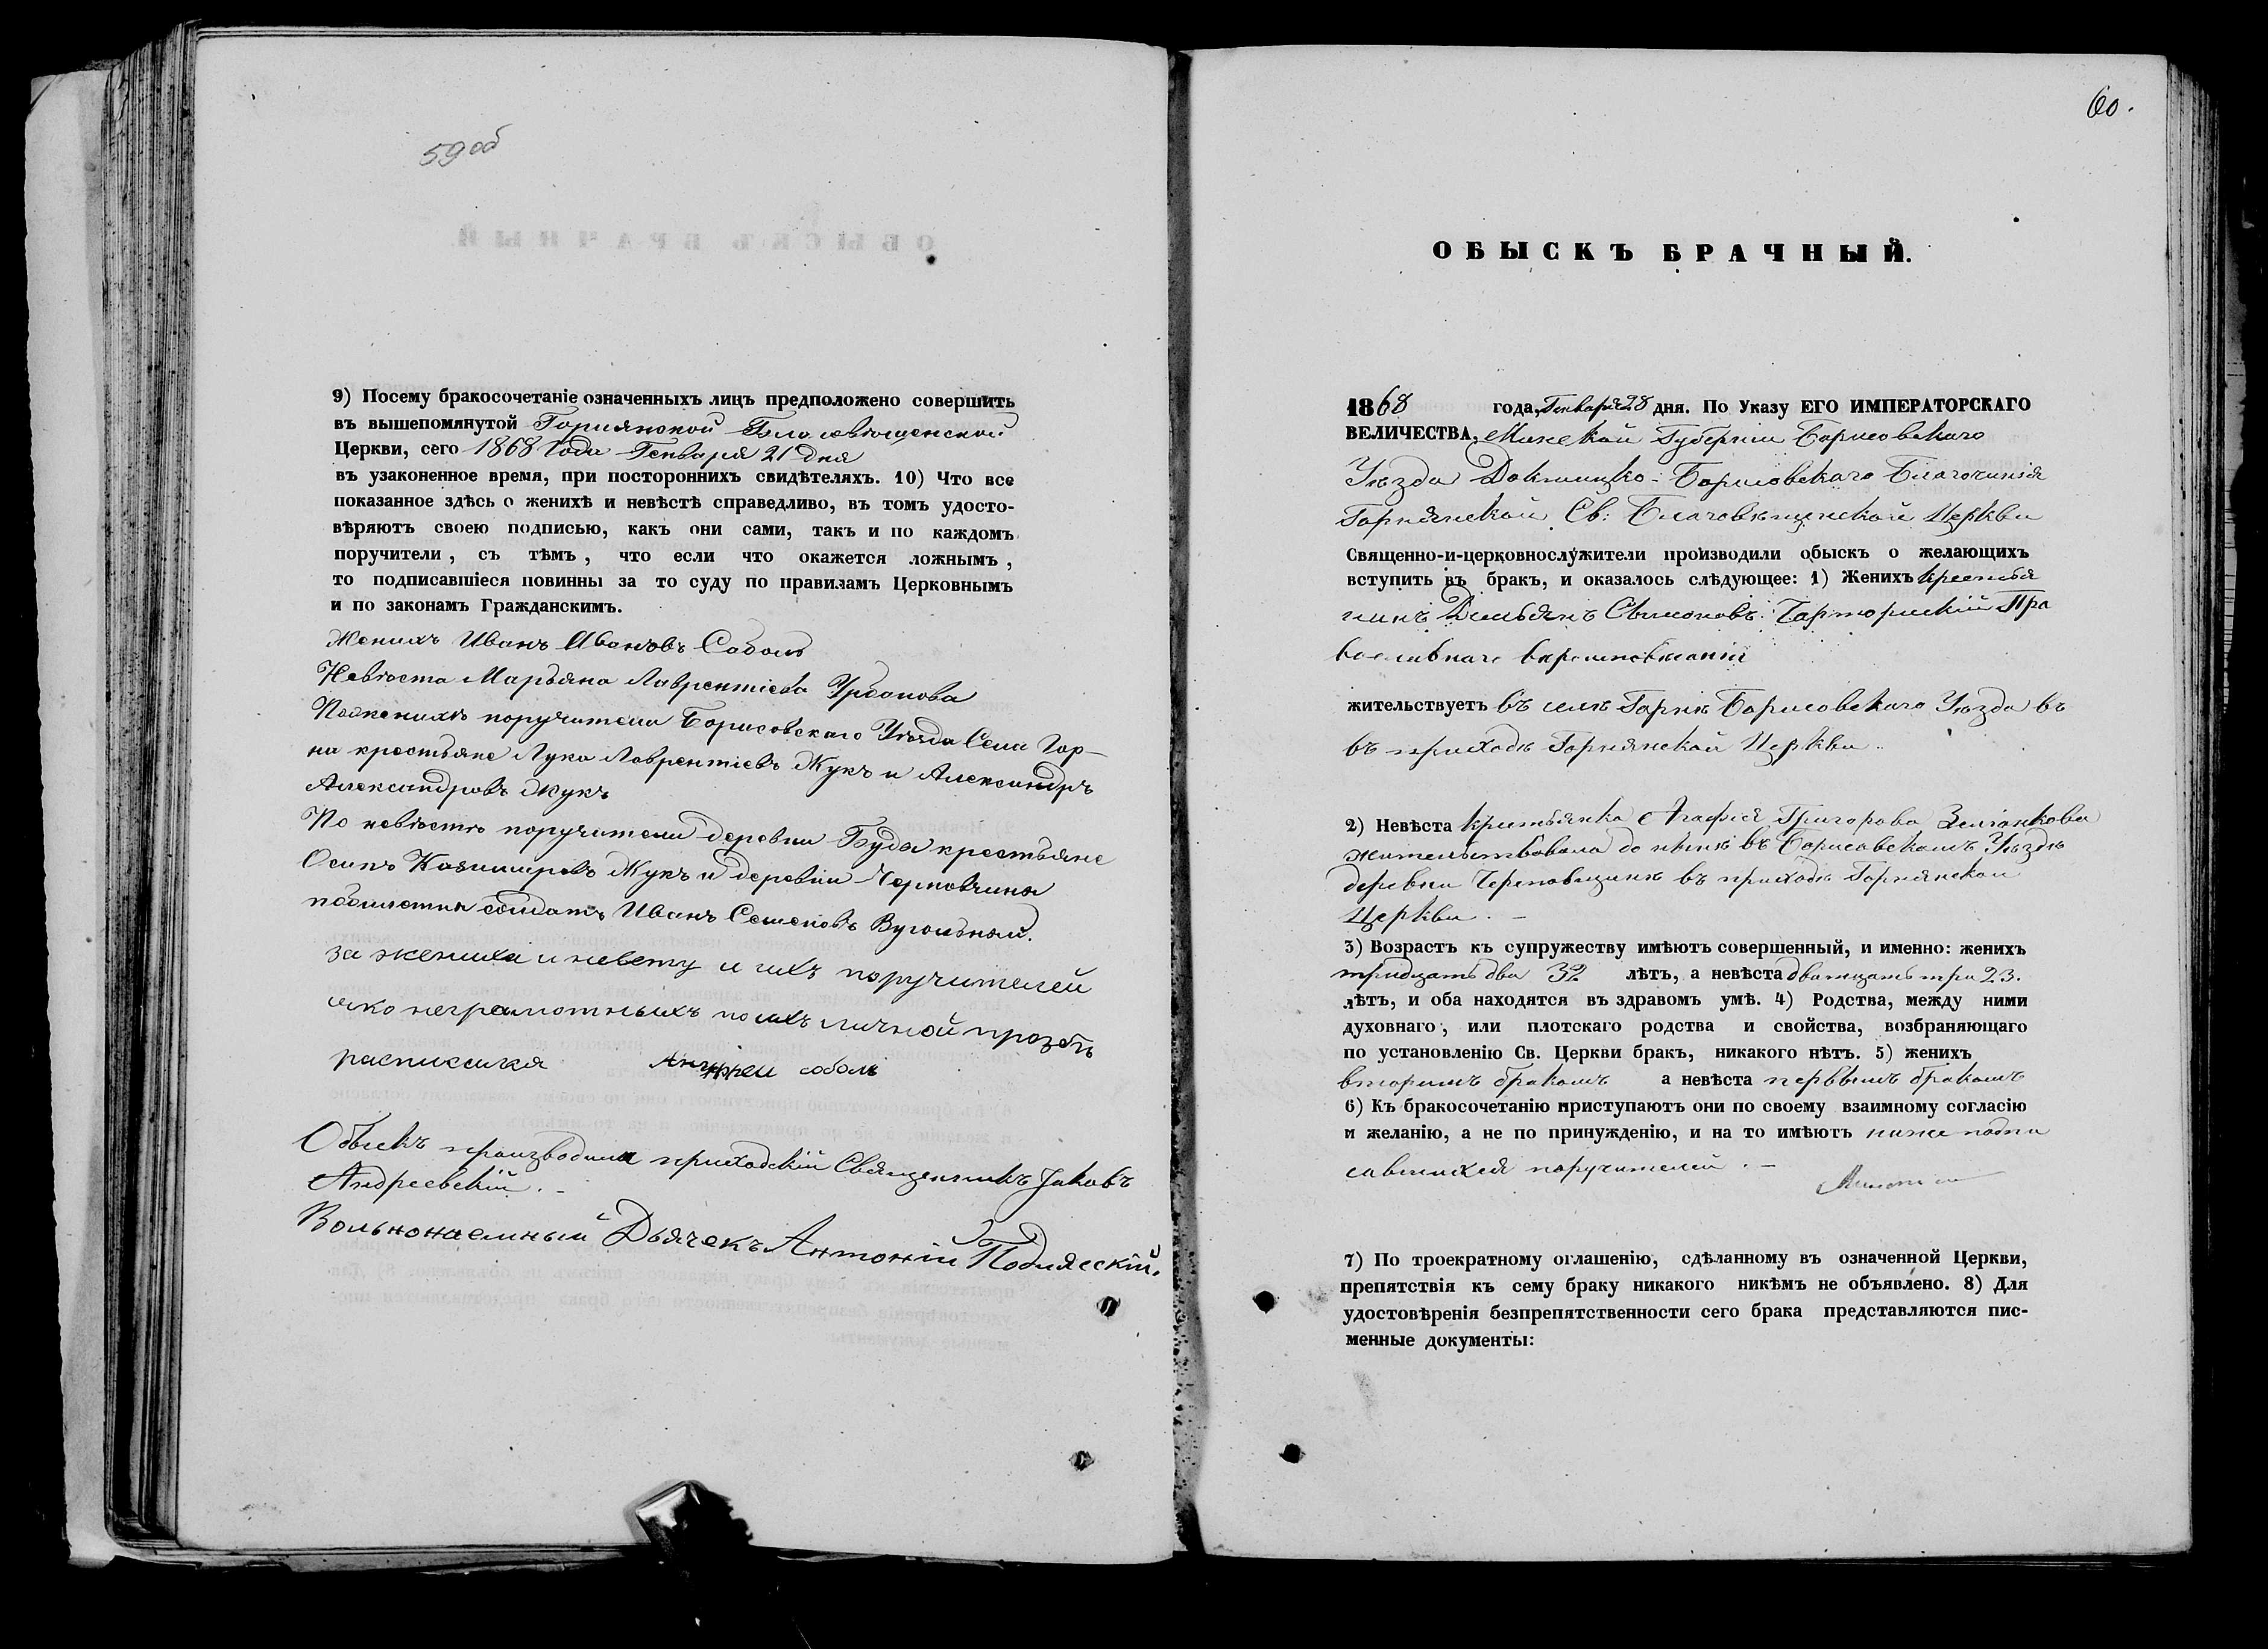 59 об
9) Посему бракосочетаніе означенныхъ лицъ предположено совершить
въ вышепомянутой Горнянской Благовѣщенской
Церкви, сего 1868 Года Генваря 21 дня
въ узаконенное время, при постороннихъ свидѣтеляхъ. 10) Что все
показанное здѣсь о женихѣ и невѣстѣ справедливо, въ томъ удосто-
вѣряютъ своею подписью, какъ они сами, такъ и по каждомъ
поручители, съ тѣмъ, что если что окажется ложнымъ,
то подписавшіеся повинны за то суду по правиламъ Церковнымъ
и по законамъ Гражданскимъ.
Женихъ Иванъ Ивановъ Соболь
Невѣста Марьяна Лаврентіева Урбанова
По женихѣ поручители Борисовскаго Уѣзда Села Гор-
на крестьяне Лука Лаврентіевъ Жукъ и Александръ
Александровъ Жукъ
По невѣстѣ поручители деревни Буда крестьяне
Осипъ Казимировъ Жукъ и деревни
солдатъ Иванъ Семеновъ Вугольный.
за жениха и невету и ихъ поручителей
яко неграмотныхъ по ихъ личной прозбѣ
росписился соболь
Обыскъ производили приходскій Священникъ Іаковъ
Андреевскій. -
Вольнонаемный Дьячекъ Антоній Подлясскій.
60.
ОБЫСКЪ БРАЧНЫЙ.
1868 года, Генваря 28 дня. По Указу ЕГО ИМПЕРАТОРСКАГО
ВЕЛИЧЕСТВА, Минской Губерніи Борисовскаго
Уѣзда Докшицко-Борисовскаго Благочинія
Горнянской Св: Благовѣщенской Церкви
Священно-и-церковнослужители производили обыскъ о желающихъ
вступить въ бракъ, и оказалось слѣдующее: 1) Женихъ крестья
нинъ Демьянъ Чарторискій Пра
вославнаго вѣроисповѣданія
жительствуетъ въ селѣ Горнѣ Борисовскаго Уѣзда въ
въ приходѣ Горнянской Церкви.
2) Невѣста крестьянка Агафія Григорова
жительствовала до нынѣ въ Борисовскомъ Уѣздѣ
деревни въ приходѣ Горнянской
Церкви. -
3) Возрастъ къ супружеству имѣютъ совершенный, и именно: женихъ
тридцать два 32 лѣтъ, а невѣста дватцать три 23.
лѣтъ, и оба находятся въ здравомъ умѣ. 4) Родства, между ними
духовнаго, или плотскаго родства и свойства, возбраняющаго
по установленію Св. Церкви бракъ, никакого нѣтъ. 5) женихъ
вторымъ бракомъ а невѣста первымъ бракомъ
6) Къ бракосочетанію приступаютъ они по своему взаимному согласію
и желанію, а не по принужденію, и на то имѣютъ ниже подпи
савшихся поручителей. -
7) По троекратному оглашенію, сдѣланному въ означенной Церкви,
препятствія къ сему браку никакого никѣмъ не объявлено. 8) Для
удостовѣренія безпрепятственности сего брака представляются пис-
менные документы: